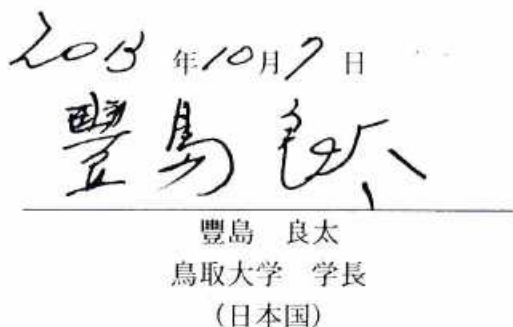 2013年10月7日
豐島良太
豐島 良太
鳥取大学 学長
(日本国)